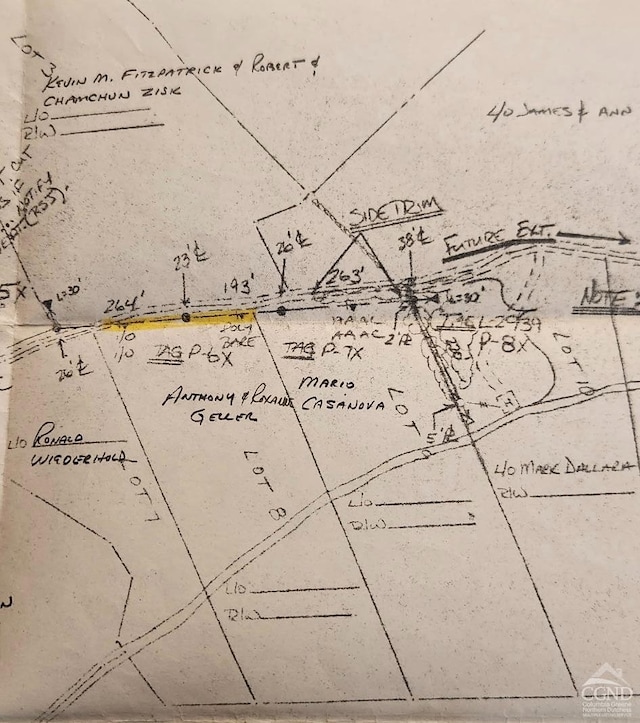 LOT 3
KEVIN M. FITZPATRICK & ROBERT &
CHAMCHUN ZISK
L/O
R/W
L/O JAMES & ANN
CUT
NOTIFY
SIDETRIM
FUTURE EXT.
NOTE:
23'℄
26'℄
38'℄
L=30'
264'
193'
263'
L=30'
26'℄
TAG P-6X
POLY
BARE
TAG P-7X
2'℄
P-8X
ANTHONY & ROXANNE
GELLER
MARIO
CASANOVA
LOT 10
5'℄
L/O RONALD
WIEDERHOLD
LOT 7
LOT 8
LOT
L/O MARK DALLARA
R/W
L/O
R/W
L/O
R/W
CGND
Columbia Greene
Northern Dutchess